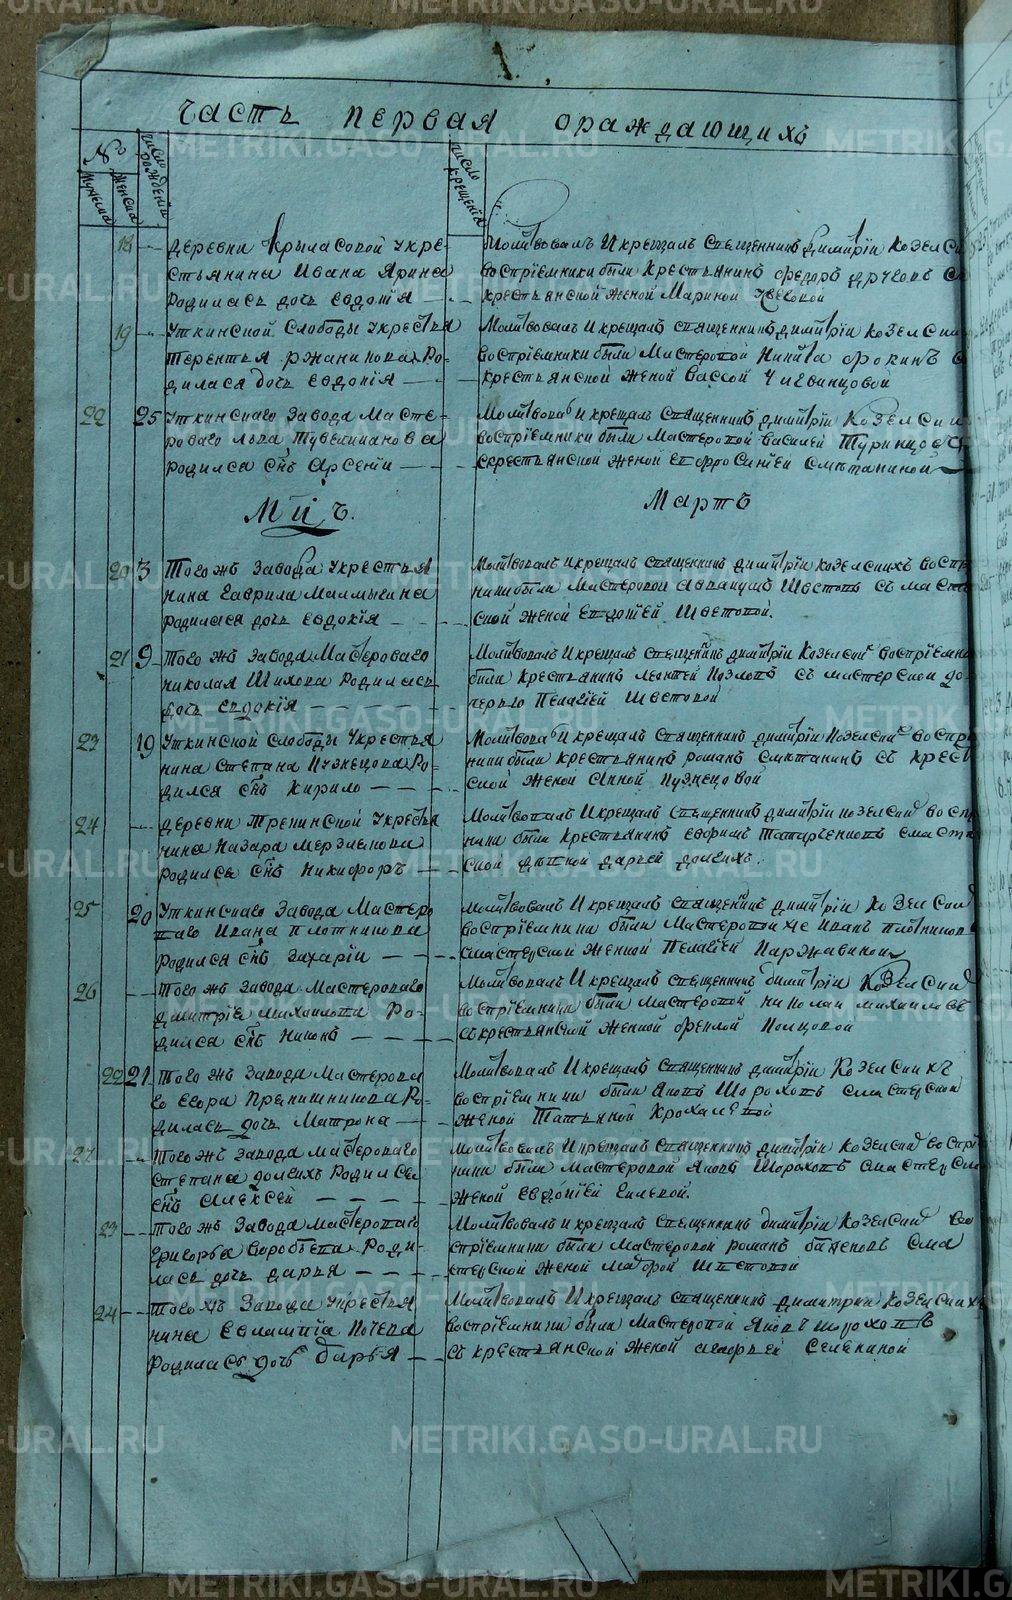 Часть первая ораждающихъ
№
Мужеска
Женска
число рождения
число крещения
18 — деревни Крыласовой укре-
стьянина Ивана Ярина
родилась дочь евдокiя — —
Молитвовалъ И крещалъ священникъ Димитрiи Козелски
воспрiемники были Крестьянинъ федоръ
крестьянской женой Мариной
19 — Уткинской Слободы укрестья
терентья ржаникова Ро-
дилася дочь евдокiя — — —
Молитвовалъ И крещалъ священникъ димитрiи козелски
воспрiемники были Мастеровой Никита фокинъ с
крестьянской женой Вассой
22 25 Уткинскаго Завода Масте-
роваго
родился сынъ Арсенiи — — —
Молитвовалъ И крещалъ священникъ димитрiи Козелски
воспрiемники были Мастеровой василей
скрестьянской женой Ефросинiей Сметаниной
М-цъ.
Мартъ
20 3 Тогожъ завода укрестья
нина Гаврила Малмыгина
родилася дочь евдокiя — — —
Молитвовалъ И крещалъ священникъ димитрiи козелскихъ воспрiе
ники были Мастеровой Шестовъ с масте
ской женой Евдокiей Шестовой.
21 9 — Тогожъ завода Мастероваго
николая Шихова родилась
дочь евдокiя — — — —
Молитвовалъ И крещалъ священникъ димитрiи Козелски воспрiемни
были крестьянинъ леонтей Козловъ съ мастерской до
черью Пелагiей Шестовой
23 19 Уткинской слободы Укрестья
нина степана Кузнецова Ро-
дился сынъ Кирило — — —
Молитвовалъ И крещалъ священникъ димитрiи Козелски воспрiе
ники были крестьянинъ романъ сметанинъ съ крест
ской женой Анной Кузнецовой
24 — деревни Трекинской укрестья
нина Назара мерзлякова
родился сынъ никифоръ — —
Молитвовалъ И крещалъ священникъ димитрiи козелски воспр
ники были крестьянинъ евфимъ Татарченковъ смасте
ской девкой дарьей долгихъ.
25 20 Уткинскаго завода Мастеро
ваго Ивана плотникова
родился сынъ Захарiи — —
Молитвовалъ И крещалъ священникъ димитрiи Козелски
воспрiемники были Мастеровой же иванъ плотников
смастерской женной Пелагiей Каржавиной
26 — тогожъ завода Мастероваго
димитрiе михаилова Ро-
дился сынъ никонъ — — — —
Молитвовалъ И крещалъ священникъ димитрiи Козелски
воспрiемники были мастеровой николаи михаиловъ
съкрестьянской женной феклой
22 21 тогожъ завода мастерова
го егора Пряничникова Ро-
дилась дочь Матрона — —
Молитвовалъ И крещалъ священникъ димитрiи Козелскихъ
воспрiемники были яковъ Шороховъ смастерской
женой Татьяной Крохалевой
27 — тогожъ завода мастероваго
степана долгихъ родился
сынъ Алексей — — — —
Молитвовалъ И крещалъ священникъ димитрiи козелски воспрiе
ники были мастеровой яковъ Шороховъ смастерско
женой Евдокiей Гилевой.
23 — тогожъ завода мастероваго
григорья воробьева роди-
лась дочь дарья — — — —
Молитвовалъ И крещалъ священникъ димитрiи Козелски во
спрiемники были мастеровой романъ баженовъ сма
стерской женой Шестовой
24 — тогожъ завода Укрестья
нина Кочева
родилась дочь дарья — —
Молитвовалъ И крещалъ священникъ димитрии козелскихъ
воспрiемники были мастеровой яковъ шороховъ
съ крестьянской женой Селениной
METRIKI.GASO-URAL.RU